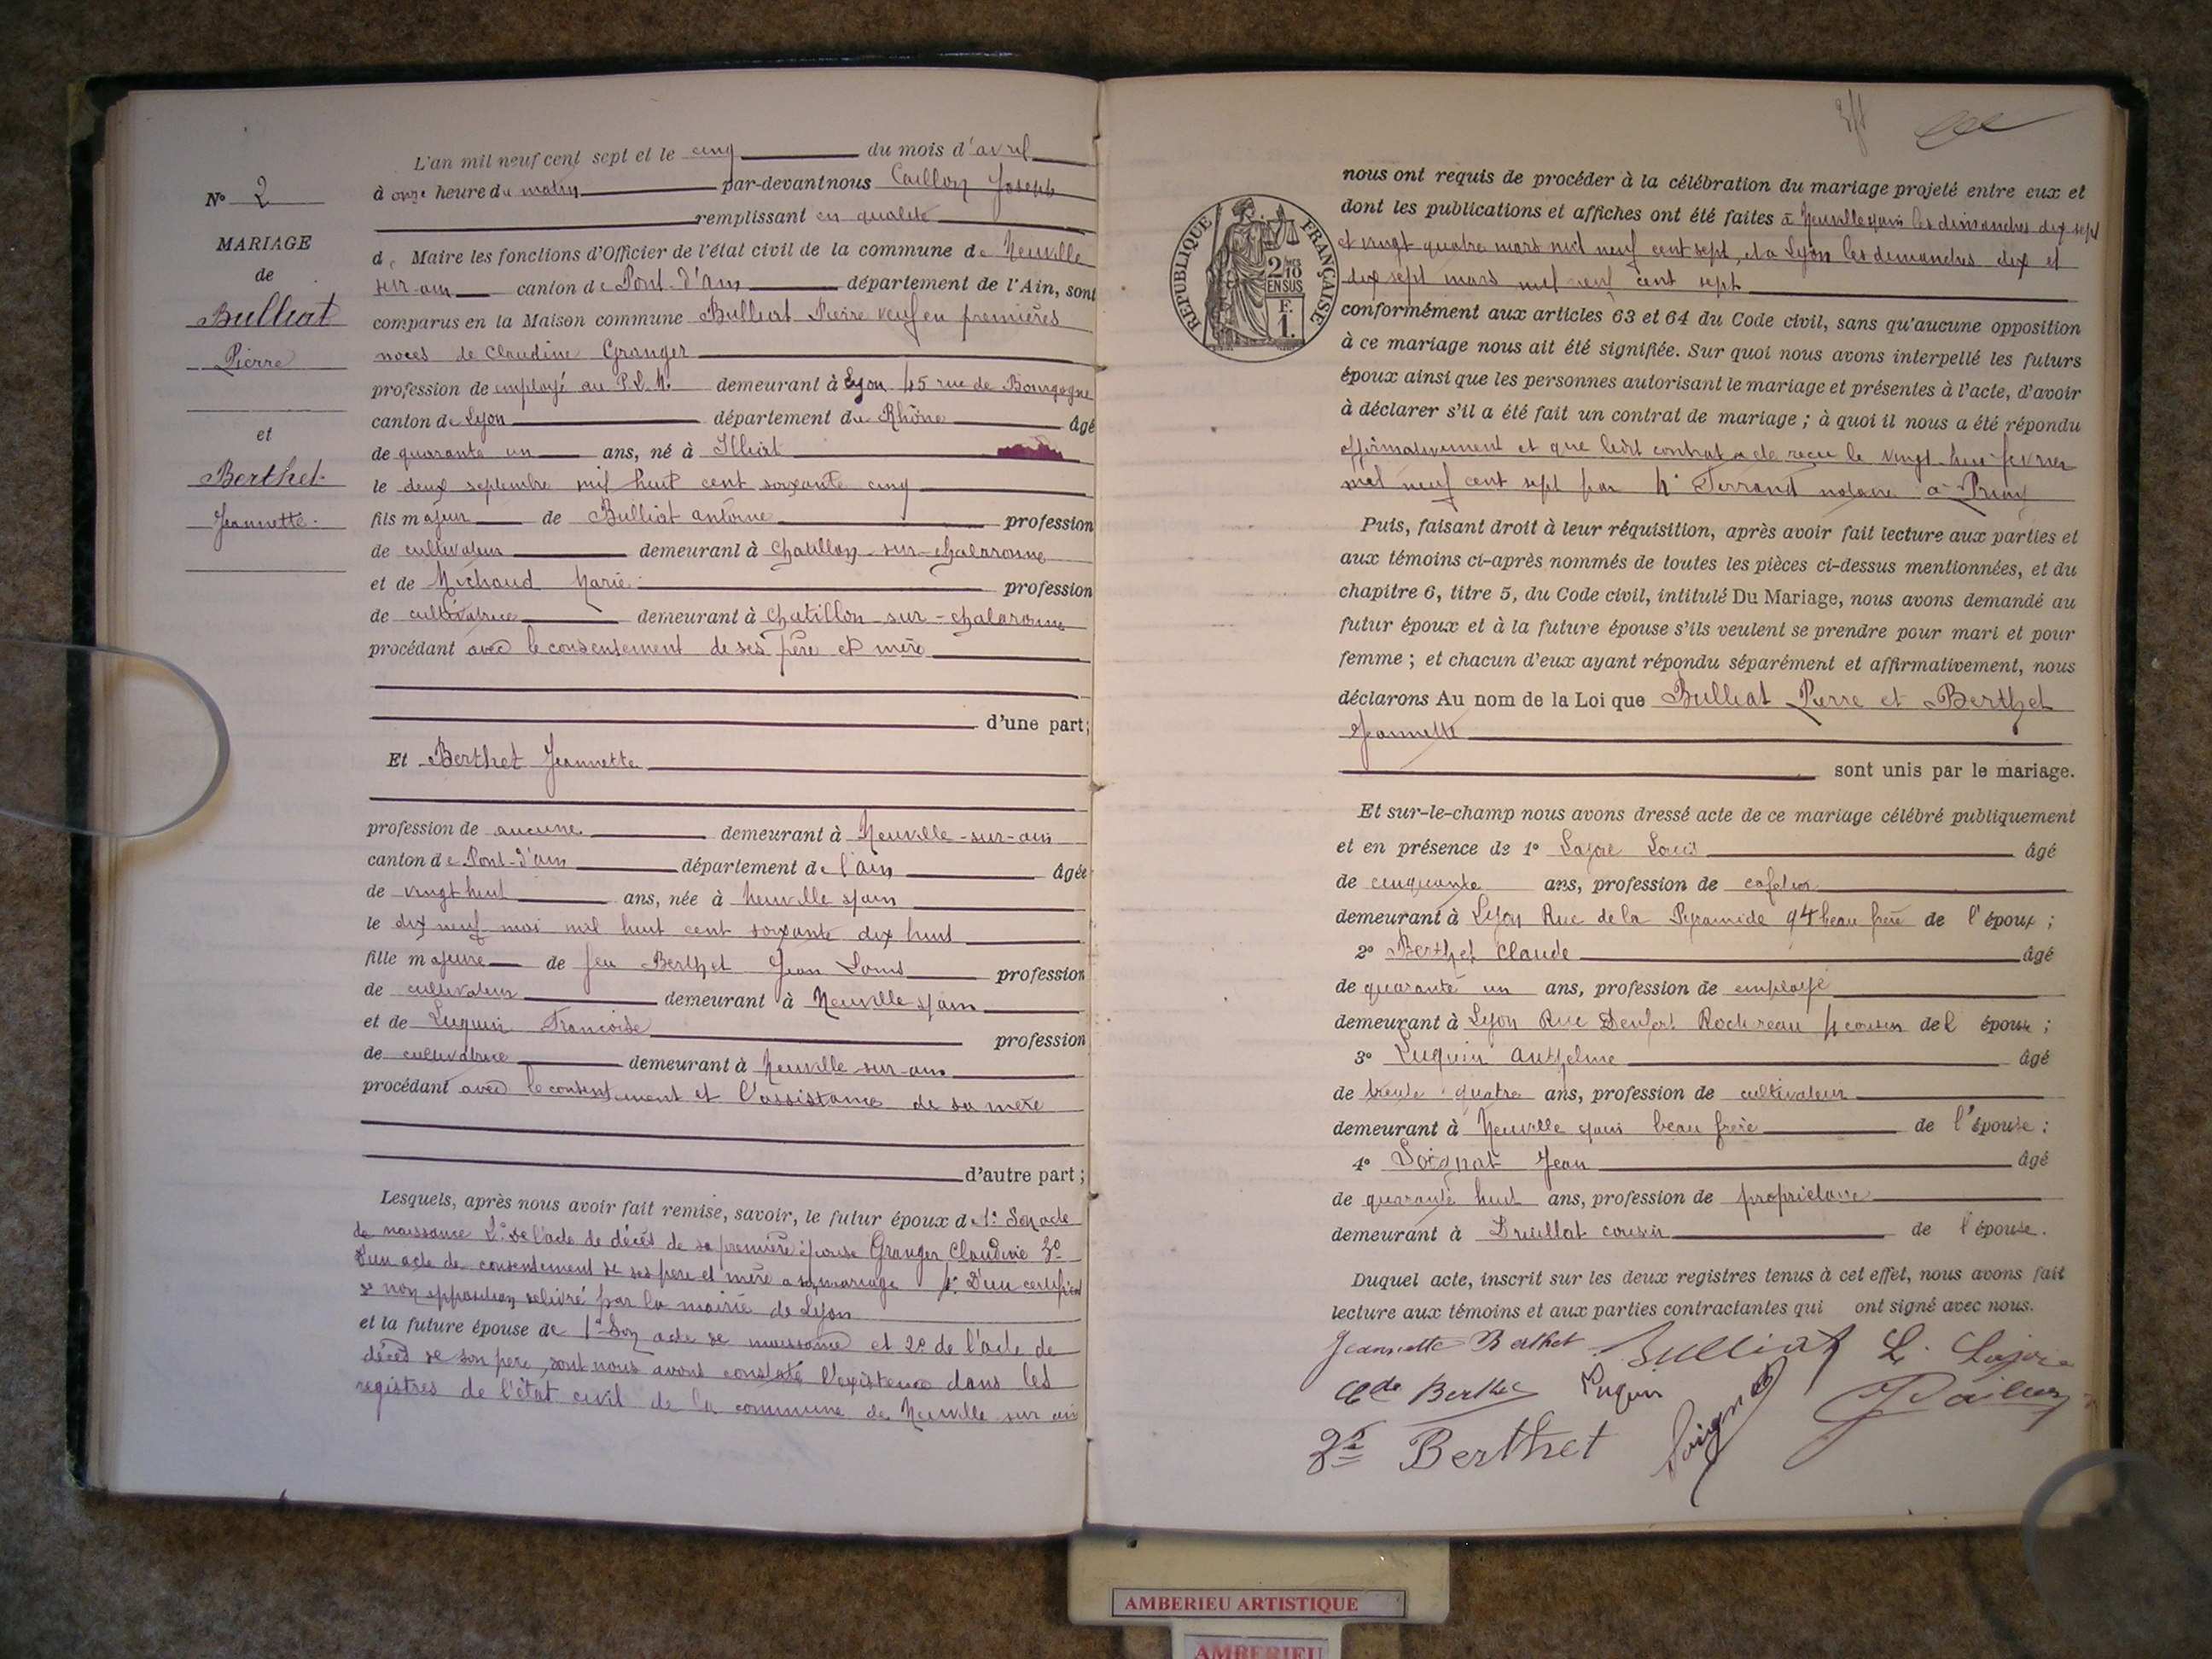 N° 2
MARIAGE
de
Bulliat
Pierre
et
Berthet
Jeannette
L'an mil neuf cent sept et le cinq du mois d'avril
à onze heure du matin par-devant nous Caillon Joseph
remplissant en qualité
de Maire les fonctions d'Officier de l'état civil de la commune de Neuville
sur-ain canton de Pont-d'ain département de l'Ain, sont
comparus en la Maison commune Bulliat Pierre veuf en premières
noces de Claudine Granger
profession de employé au P.L.M. demeurant à Lyon 45 rue de Bourgogne
canton de Lyon département du Rhône âgé
de quarante un ans, né à Illiat
le deux septembre mil huit cent soixante cinq
fils majeur de Bulliat antoine profession
de cultivateur demeurant à Chatillon-sur-chalaronne
et de Michaud Marie profession
de cultivatrice demeurant à Chatillon-sur-chalaronne
procédant avec le consentement de ses père et mère
d'une part;
Et Berthet Jeannette
profession de aucune demeurant à Neuville-sur-ain
canton de Pont-d'ain département de l'ain âgée
de vingt huit ans, née à Neuville s/ain
le dix neuf mai mil huit cent soixante dix huit
fille majeure de feu Berthet Jean Louis profession
de cultivateur demeurant à Neuville s/ain
et de Luquin Francoise profession
de cultivatrice demeurant à Neuville-sur-ain
procédant avec le consentement et l'assistance de sa mère
d'autre part;
Lesquels, après nous avoir fait remise, savoir, le futur époux de 1° Son acte
de naissance 2° de l'acte de décès de sa première épouse Granger Claudine 3°
D'un acte de consentement de ses père et mère a son mariage 4° D'un certificat
de non opposition délivré par la mairie de Lyon
et la future épouse de 1° Son acte de naissance et 2° de l'acte de
décès de son père, dont nous avons constaté l'existence dans les
registres de l'état civil de la commune de Neuville sur ain
RÉPUBLIQUE FRANÇAISE
2/10
EN SUS
F.
1.
nous ont requis de procéder à la célébration du mariage projeté entre eux et
dont les publications et affiches ont été faites à Neuville s/ain les dimanches dix sept
et vingt quatre mars mil neuf cent sept, et a Lyon les dimanches dix et
dix sept mars mil neuf cent sept
conformément aux articles 63 et 64 du Code civil, sans qu'aucune opposition
à ce mariage nous ait été signifiée. Sur quoi nous avons interpellé les futurs
époux ainsi que les personnes autorisant le mariage et présentes à l'acte, d'avoir
à déclarer s'il a été fait un contrat de mariage; à quoi il nous a été répondu
affirmativement et que ledit contrat a été reçu le vingt huit fevrier
mil neuf cent sept par Mr Ferrand notaire à Priay
Puis, faisant droit à leur réquisition, après avoir fait lecture aux parties et
aux témoins ci-après nommés de toutes les pièces ci-dessus mentionnées, et du
chapitre 6, titre 5, du Code civil, intitulé Du Mariage, nous avons demandé au
futur époux et à la future épouse s'ils veulent se prendre pour mari et pour
femme; et chacun d'eux ayant répondu séparément et affirmativement, nous
déclarons Au nom de la Loi que Bulliat Pierre et Berthet
Jeannette
sont unis par le mariage.
Et sur-le-champ nous avons dressé acte de ce mariage célébré publiquement
et en présence de 1° Louis âgé
de cinquante ans, profession de cafetier
demeurant à Lyon Rue de la Pyramide 94 beau frère de l'époux;
2° Berthet Claude âgé
de quarante un ans, profession de employé
demeurant à Lyon Rue Denfert Rochereau 4 cousin de l'épouse;
3° Luquin Anthelme âgé
de trente quatre ans, profession de cultivateur
demeurant à Neuville s/ain beau frère de l'épouse;
4° Soignat Jean âgé
de quarante huit ans, profession de propriétaire
demeurant à Druillat cousin de l'épouse.
Duquel acte, inscrit sur les deux registres tenus à cet effet, nous avons fait
lecture aux témoins et aux parties contractantes qui ont signé avec nous.
Jeannette Berthet Bulliat L.
Cde Berthet Luquin J Caillon
Berthet
AMBERIEU ARTISTIQUE
AMBERIEU